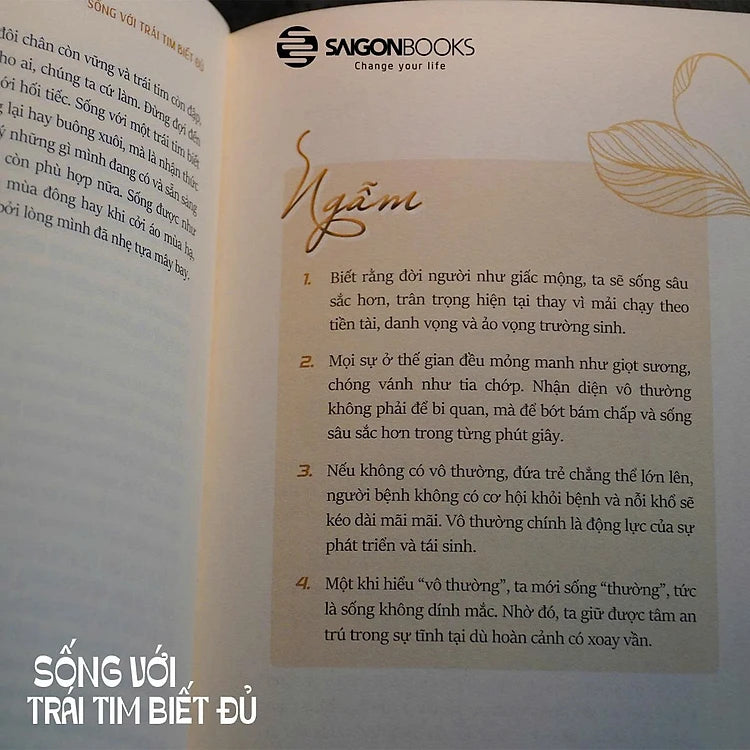 SỐNG VỚI TRÁI TIM BIẾT ĐỦ
đôi chân còn vững và trái tim còn đập,
ho ai, chúng ta cứ làm. Đừng đợi đến
ới hối tiếc. Sống với một trái tim biết
g lại hay buông xuôi, mà là nhận thức
ý những gì mình đang có và sẵn sàng
còn phù hợp nữa. Sống được như
mùa đông hay khi cởi áo mùa hạ,
bởi lòng mình đã nhẹ tựa mây bay.
SAIGONBOOKS
Change your life
Ngẫm
1. Biết rằng đời người như giấc mộng, ta sẽ sống sâu
sắc hơn, trân trọng hiện tại thay vì mải chạy theo
tiền tài, danh vọng và ảo vọng trường sinh.
2. Mọi sự ở thế gian đều mỏng manh như giọt sương,
chóng vánh như tia chớp. Nhận diện vô thường
không phải để bi quan, mà để bớt bám chấp và sống
sâu sắc hơn trong từng phút giây.
3. Nếu không có vô thường, đứa trẻ chẳng thể lớn lên,
người bệnh không có cơ hội khỏi bệnh và nỗi khổ sẽ
kéo dài mãi mãi. Vô thường chính là động lực của sự
phát triển và tái sinh.
4. Một khi hiểu “vô thường”, ta mới sống “thường”, tức
là sống không dính mắc. Nhờ đó, ta giữ được tâm an
trú trong sự tĩnh tại dù hoàn cảnh có xoay vần.
SỐNG VỚI
TRÁI TIM BIẾT ĐỦ